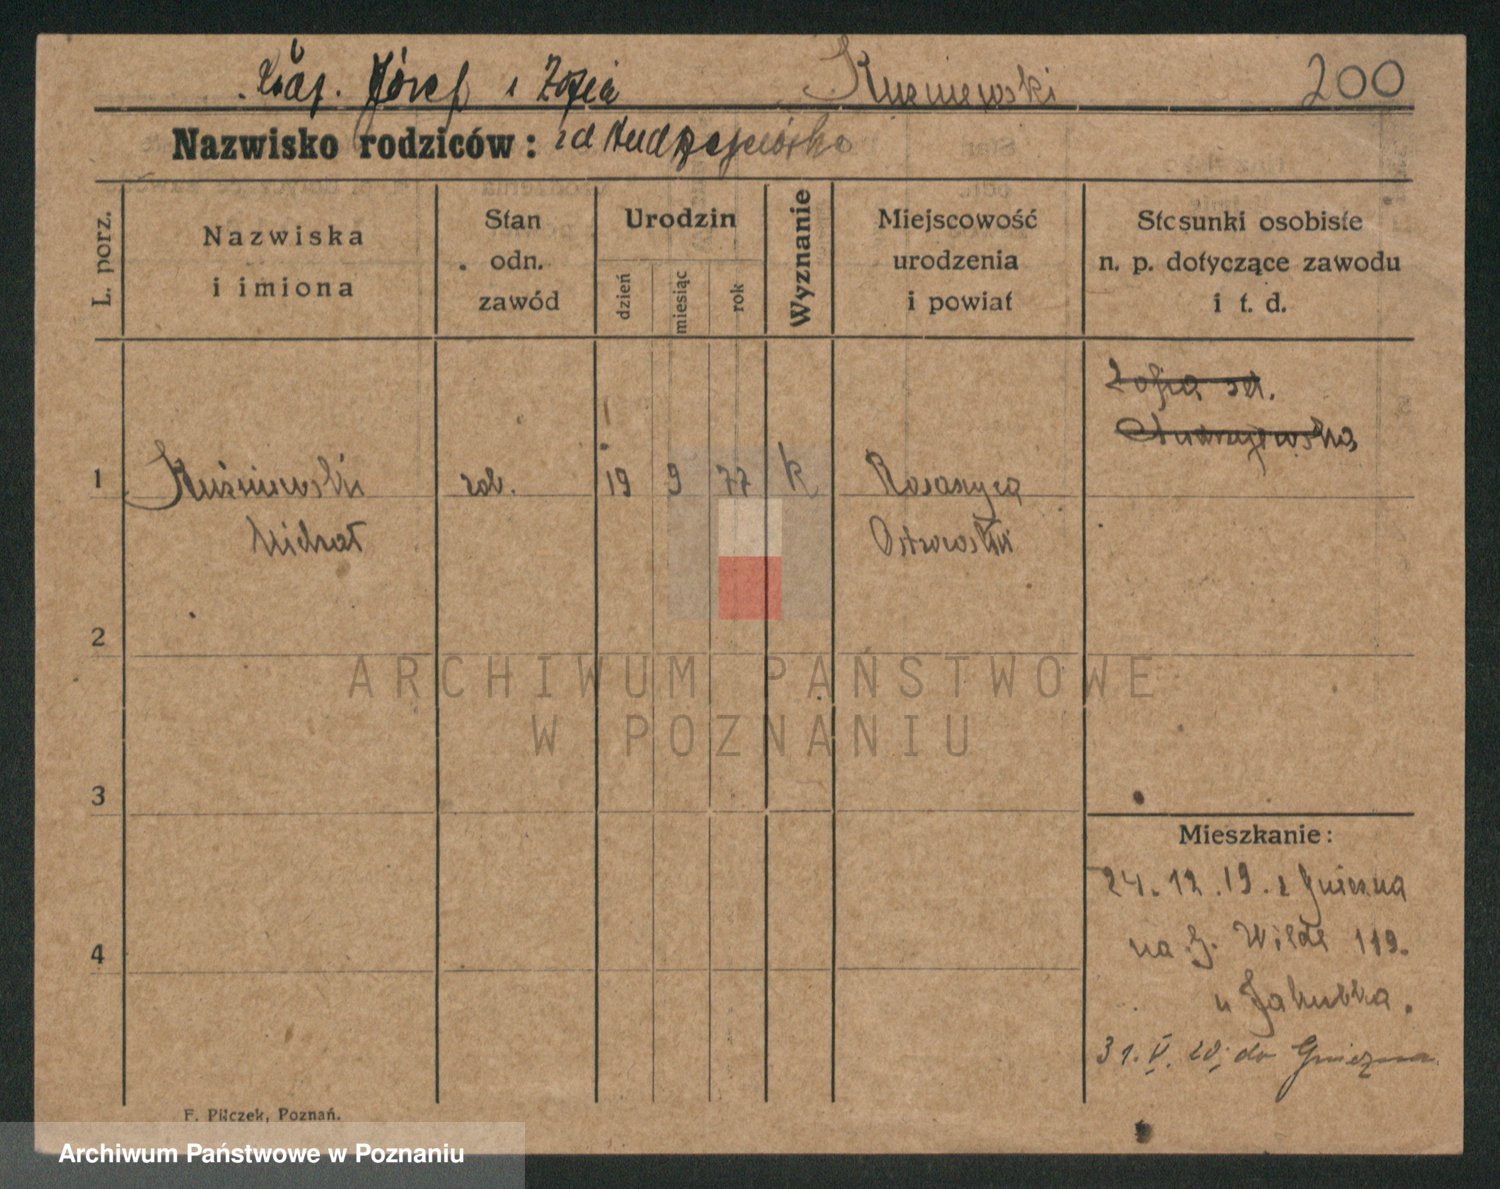 Józef i Zofia Kuźniewski 200
Nazwisko rodziców: zd Andrzejewska
L. porz.
Nazwiska
i imiona
Stan
odn.
zawód
Urodzin
dzień
miesiąc
rok
Wyznanie
Miejscowość
urodzenia
i powiat
Stosunki osobiste
n. p. dotyczące zawodu
i t. d.
Zofia zd.
Andrzejewska
1 Kuźniewski rob. 19 9 77 k
Michał
2
3
4
Mieszkanie:
24.12.19. z Gniezna
na G. Wilde 119.
u Jakubka.
31.V.20. do Gniezna
F. Pilczek, Poznań.
ARCHIWUM PAŃSTWOWE
W POZNANIU
Archiwum Państwowe w Poznaniu